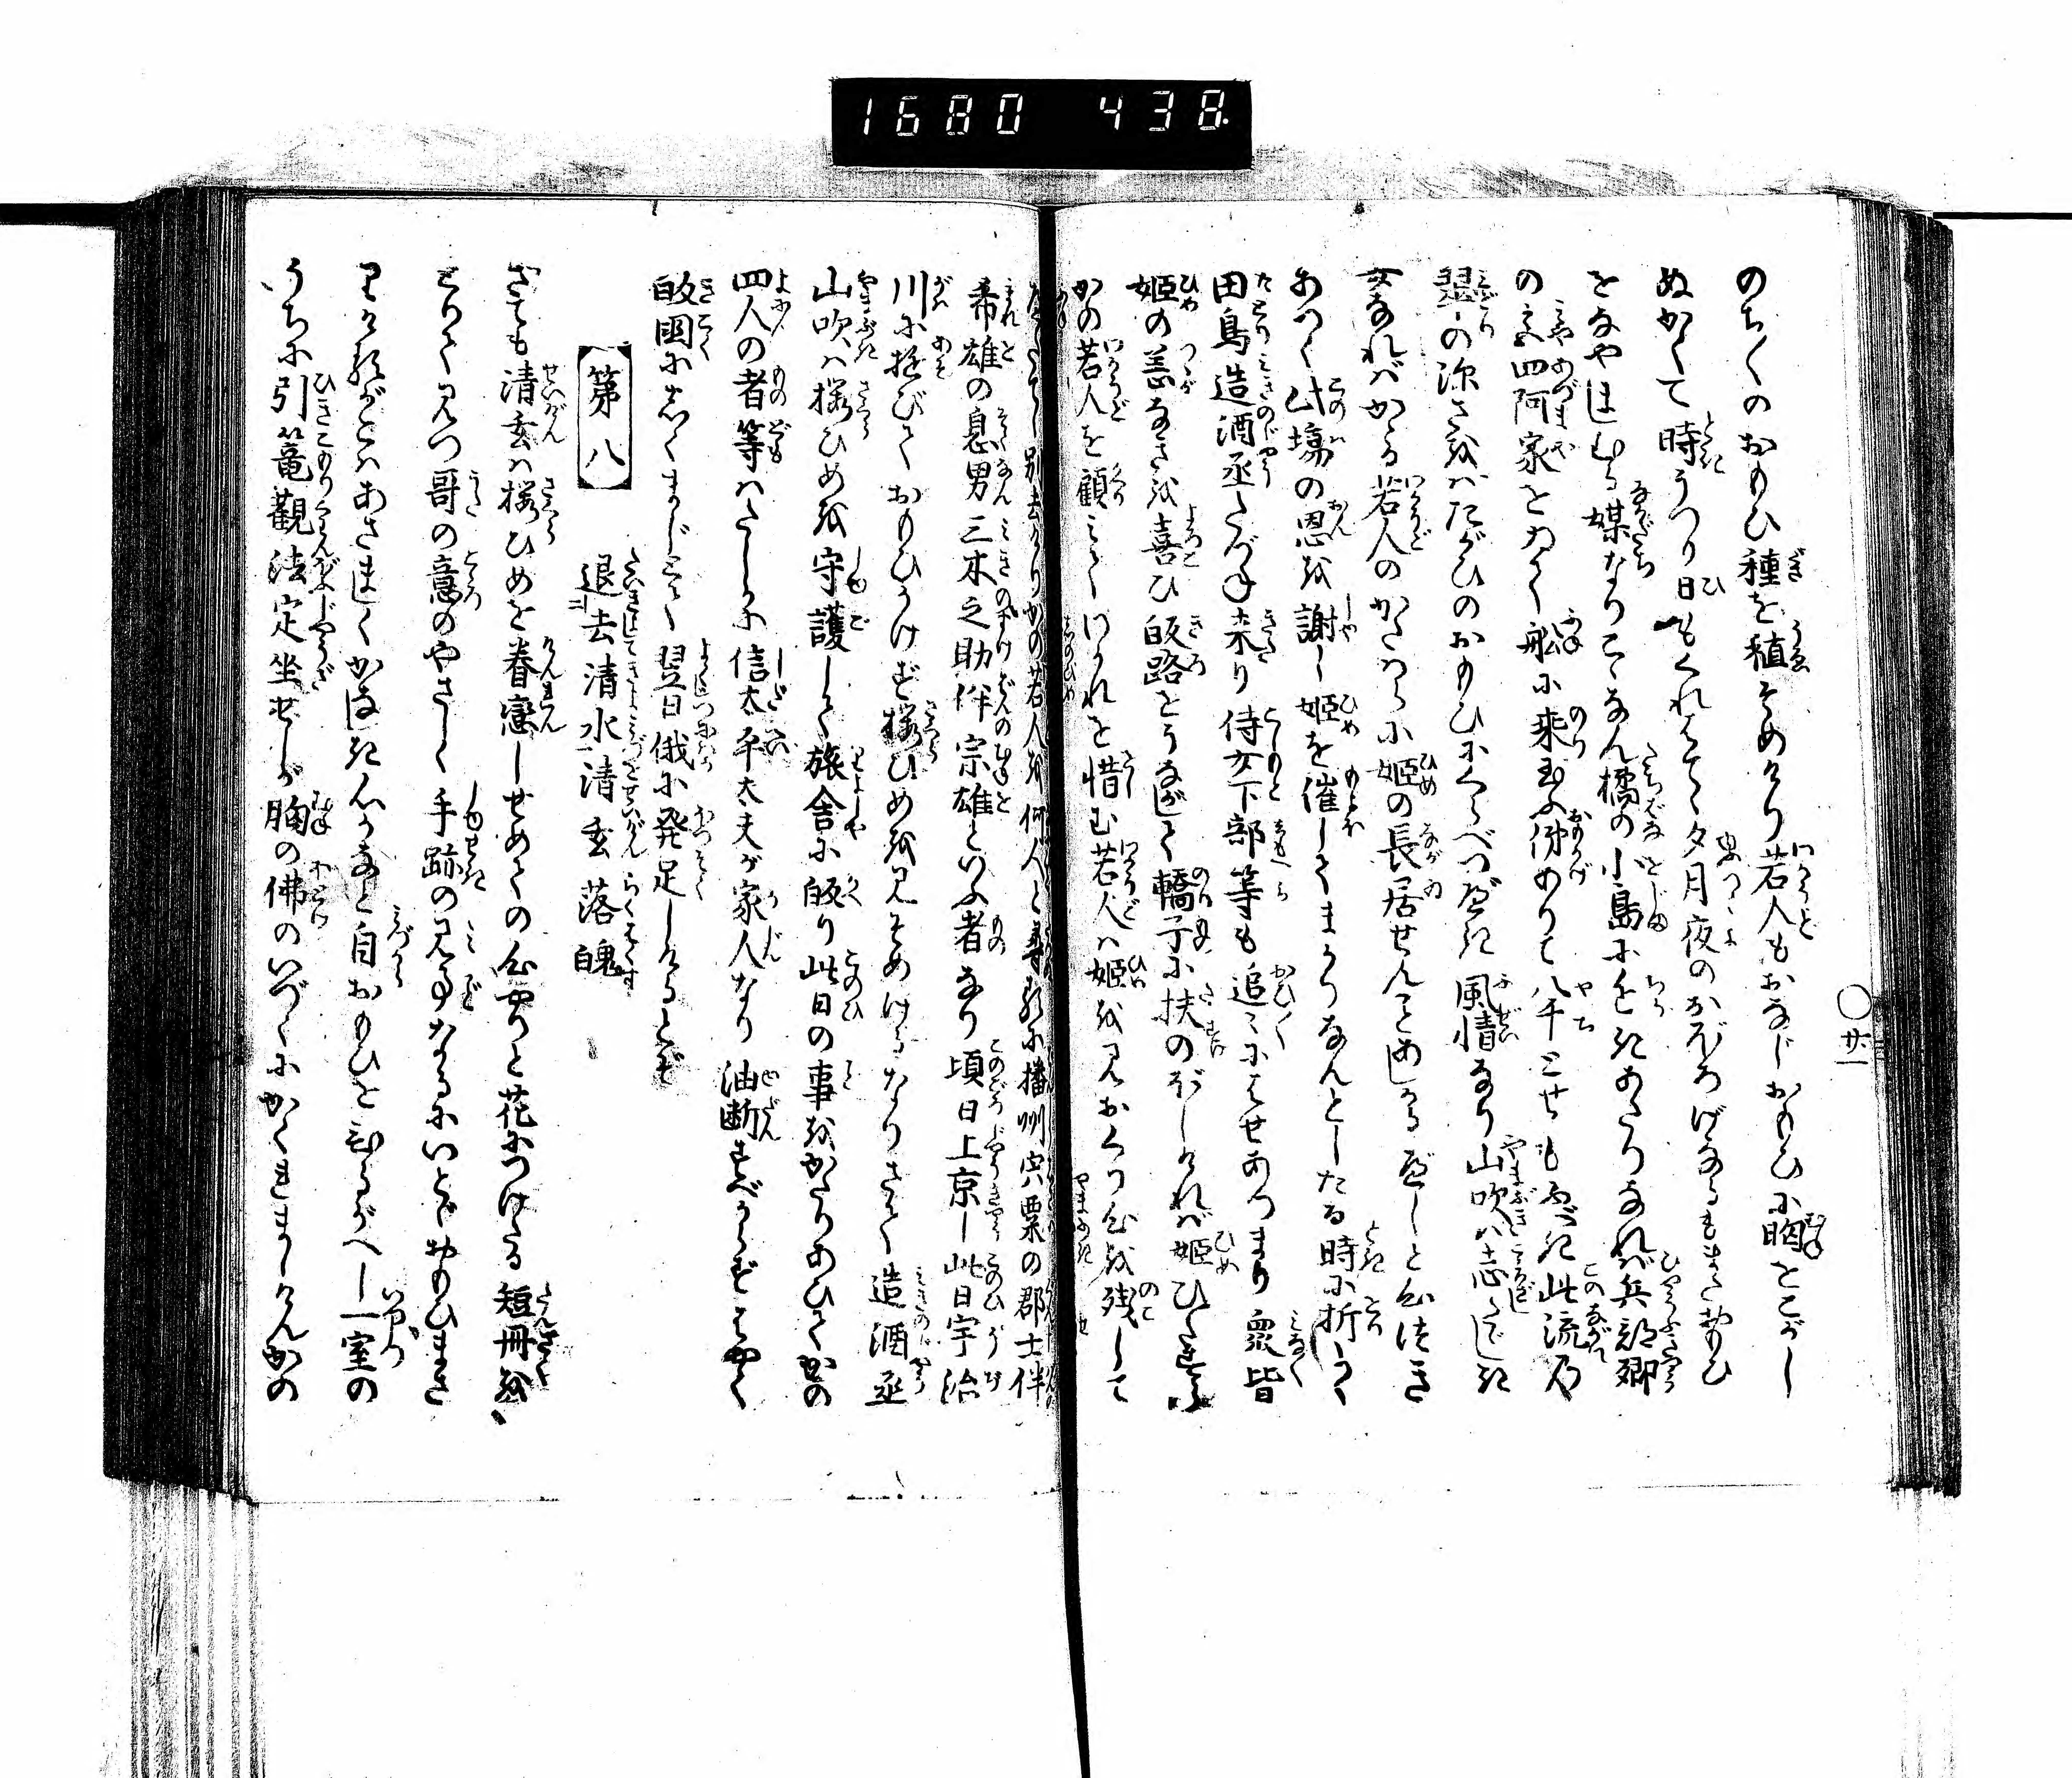 1680 438
のち〳〵のおもひ種を植そめけり若人もおなじおもひに胸とこがし
ぬかくて時うつり日もくれはてゝ夕月夜のおぼろげなるもまたおもひ
をなやませる媒なりこゝなん橘の小島にちかきあたりなれば兵部卿
の宮四阿家をゐて舩に乗玉ふ俤ありて八千とせもふべき此流乃
翠の深さをたがひのおもひにくらべつべき風情なり山吹は志たゝじき
女なればかゝる若人のかたはらに姫の長居せんことあしかるべしと心つき
あつく此場の恩を謝し姫を催してまかりなんとしたる時に折よく
田鳥造酒丞たづね来り侍女下部等も追々にはせあつまり衆皆
姫の恙なきを喜び皈路をうながして轎子に扶のぼしければ姫ひたすら
かの若人を顧みてわかれを惜む若人は姫を見おくり心を残して
別去けりかの若人を何人と尋るに播州宍粟の郡士伴
希雄の息男三木之助伴宗雄といふ者なり頃日上京し此日宇治
川に遊びておもひうけず桜ひめを見そめけるなりさて造酒丞
山吹は桜ひめを守護して旅舎に皈り此日の事をかたりあひてかの
四人の者等はたしかに信太平太夫が家人なり油断すべからずはやく
皈国にしくまじとて翌日俄に発足しけるとぞ
第八
退去清水清玄落魄
さても清玄は桜ひめを眷恋しせめての心やりと花につけたる短冊を
とりて見つ哥の意のやさしく手跡の見事なるにいとゞおもひまさ
りける我がとはあさましくかはき心かなと自おもひとむるがへし一室の
うちに引篭観法定坐せしが胸の佛のいづくにかくれましけんかの